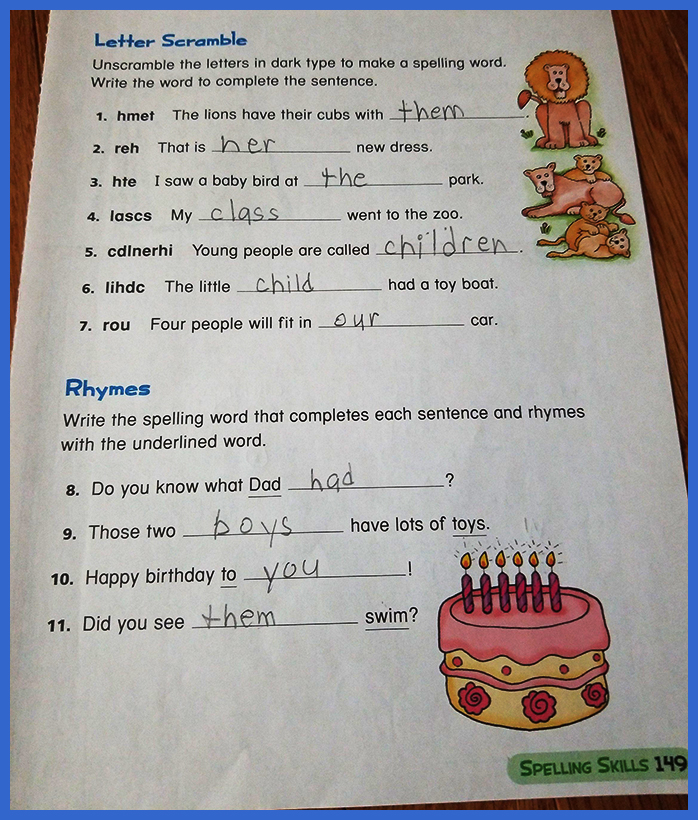 Letter Scramble
Unscramble the letters in dark type to make a spelling word.
Write the word to complete the sentence.
1. hmet The lions have their cubs with them.
2. reh That is her new dress.
3. hte I saw a baby bird at the park.
4. lascs My class went to the zoo.
5. cdlnerhi Young people are called children.
6. lihdc The little child had a toy boat.
7. rou Four people will fit in our car.
Rhymes
Write the spelling word that completes each sentence and rhymes
with the underlined word.
8. Do you know what Dad had?
9. Those two boys have lots of toys.
10. Happy birthday to you!
11. Did you see them swim?
SPELLING SKILLS 149